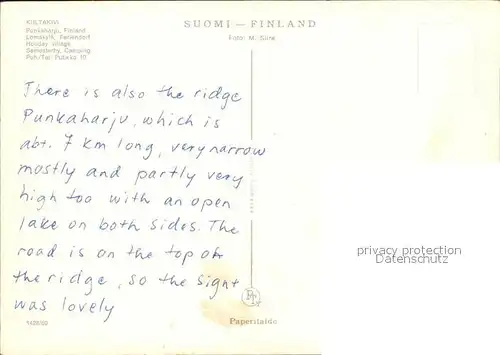 KIELTAKIVI
Punkaharju, Finland
Lomakylä, Feriendorf
Holiday village
Semesterby, Camping
Puh/Tel. Putikko 10
SUOMI — FINLAND
Foto: M. Siira
There is also the ridge
Punkaharju, which is
abt. 7 km long, very narrow
mostly and partly very
high too with an open
lake on both sides. The
road is on the top of
the ridge, so the signt
was lovely
privacy protection
Datenschutz
Paperitaide